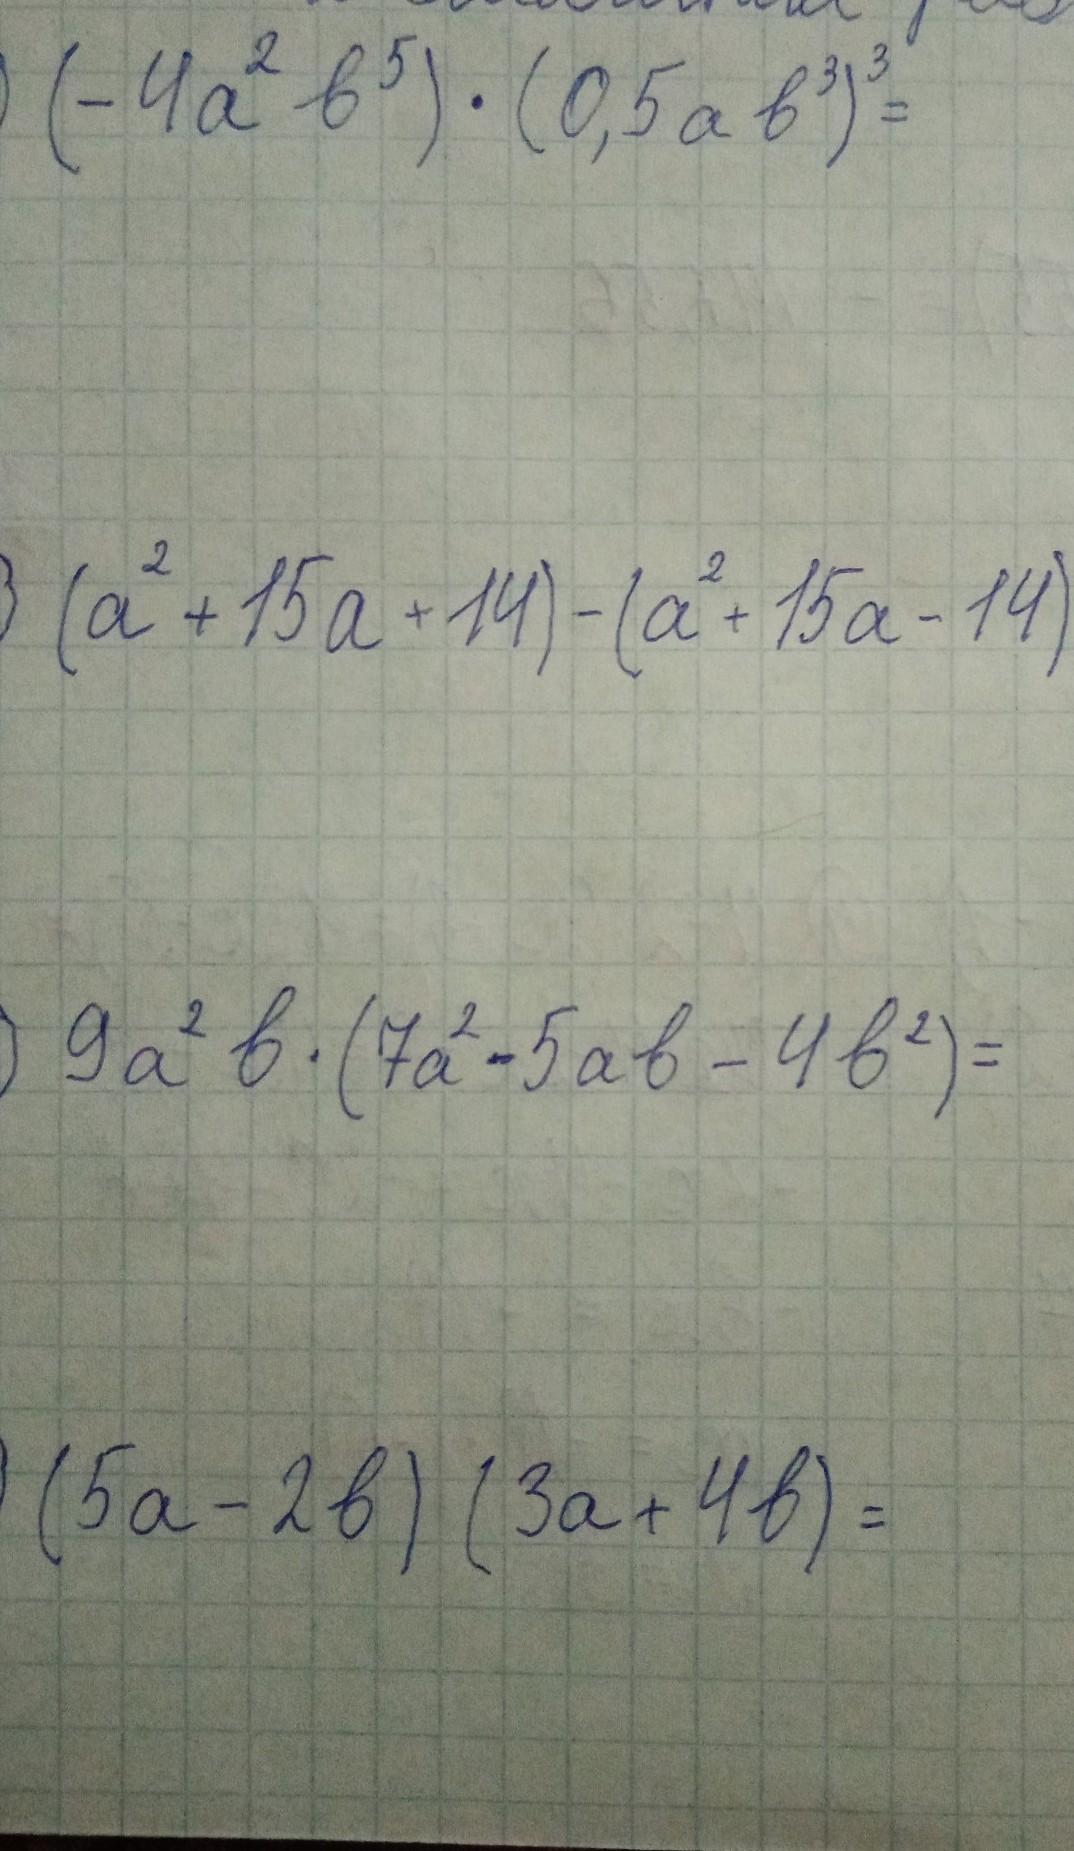 ) (-4a² b⁵) · (0,5a b³)³=
) (a² + 15a + 14) - (a² + 15a - 14)
) 9a² b · (7a² - 5ab - 4b²) =
) (5a - 2b) (3a + 4b) =